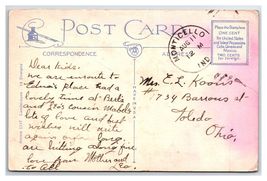 POST CARD
CORRESPONDENCE
Place the Stamp here
ONE CENT
for United States
and Island Possessions
Cuba, Canada and
Mexico
TWO CENTS
for Foreign
MONTICELLO
AUG 11
12 M
IND.
Dear kids.
we are enroute to
Edna's place had a
lovely time at Berts
and Flo's cousin Mabel
lots of love and best
wishes will write
again soon
hitting along fine
love from Mother and
to all Leo.
Mrs. E. L. Koons
#734 Barrows st
Toledo
Ohio,